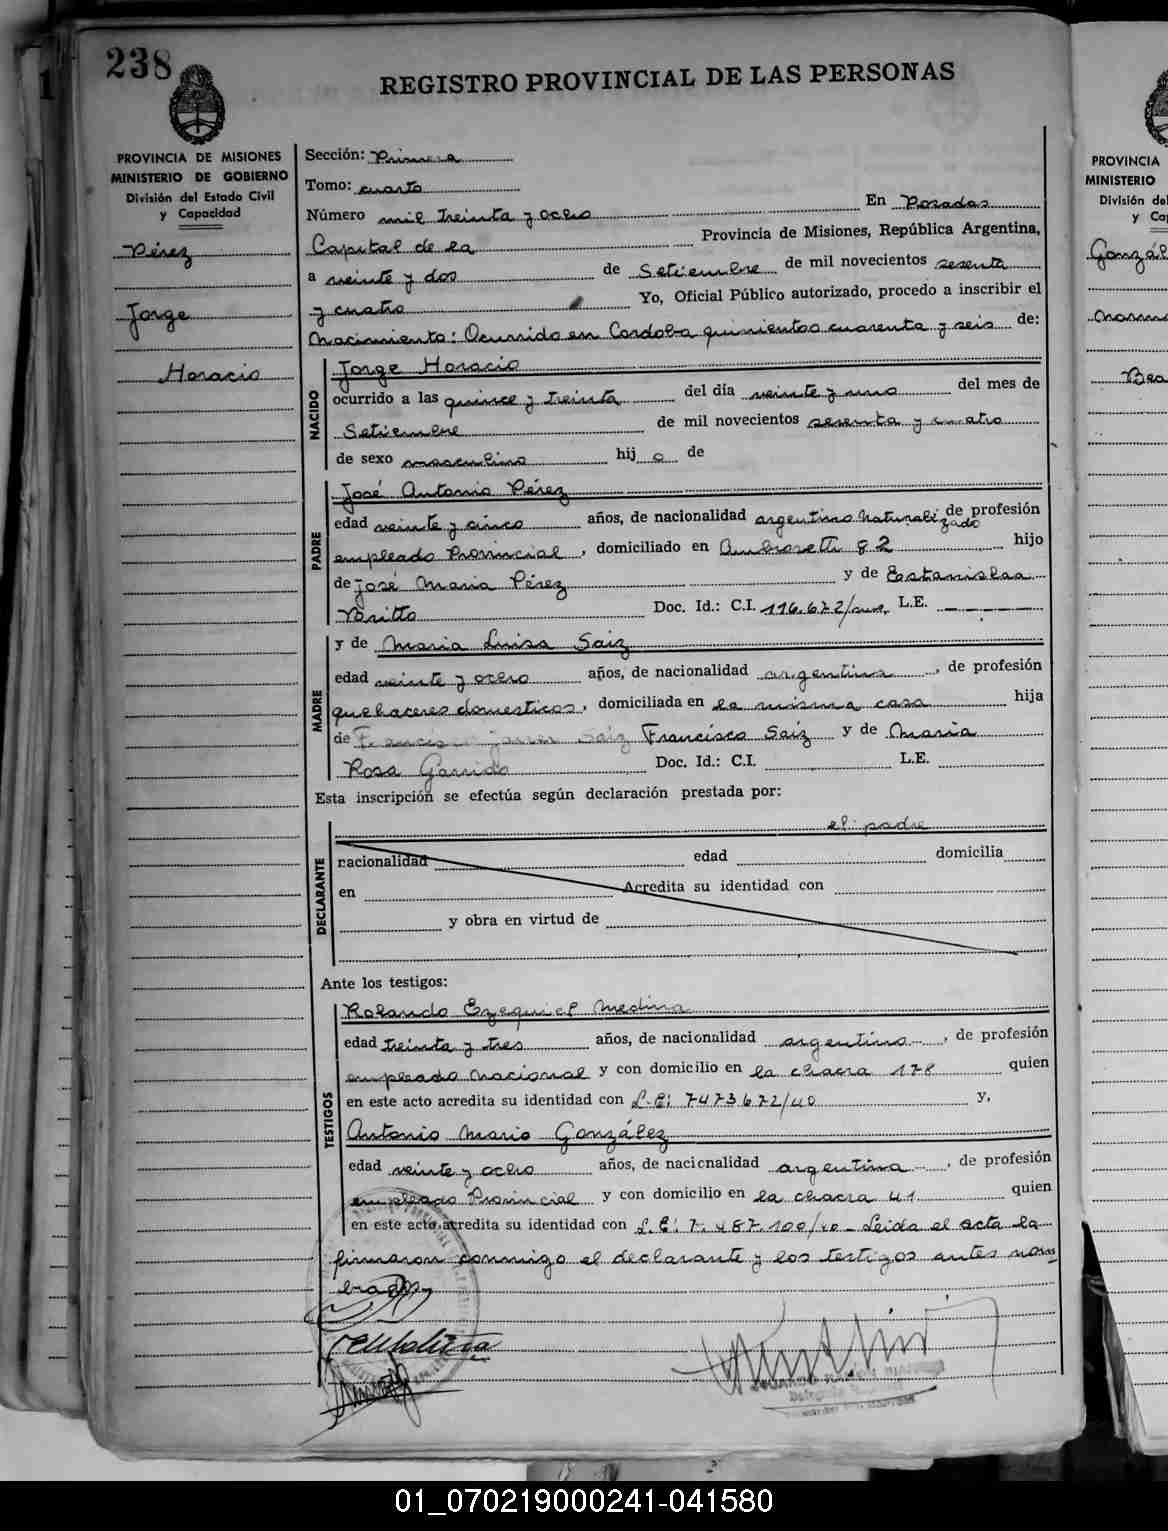 238
REGISTRO PROVINCIAL DE LAS PERSONAS
PROVINCIA DE MISIONES
MINISTERIO DE GOBIERNO
División del Estado Civil
y Capacidad
Pérez
Jorge
Horacio
Sección: Primera
Tomo: cuarto
Número mil treinta y ocho En Posadas
Capital de la Provincia de Misiones, República Argentina,
a veinte y dos de Setiembre de mil novecientos sesenta
y cuatro Yo, Oficial Público autorizado, procedo a inscribir el
Nacimiento: Ocurrido en Cordoba quinientos cuarenta y seis de:
NACIDO
Jorge Horacio
ocurrido a las quince y treinta del día veinte y uno del mes de
Setiembre de mil novecientos sesenta y cuatro
de sexo masculino hij o de
PADRE
José Antonio Pérez
edad veinte y cinco años, de nacionalidad argentino Naturalizado de profesión
empleado Provincial, domiciliado en Ambrosetti 82 hijo
de José Maria Pérez y de Estanislaa
Britto Doc. Id.: C.I. 116.672/ L.E.
MADRE
y de Maria Luisa Saiz
edad veinte y ocho años, de nacionalidad argentina, de profesión
quehaceres domesticos, domiciliada en la misma casa hija
de Francisco Javier Saiz Francisco Saiz y de Maria
Rosa Garrido Doc. Id.: C.I. L.E.
Esta inscripción se efectúa según declaración prestada por:
DECLARANTE
el padre
nacionalidad edad domicilia
en Acredita su identidad con
y obra en virtud de
Ante los testigos:
TESTIGOS
Rolando Ezequiel Medina
edad treinta y tres años, de nacionalidad argentino, de profesión
empleado Nacional y con domicilio en la chacra 178 quien
en este acto acredita su identidad con L.E: 7473672/40 y,
Antonio Mario González
edad veinte y ocho años, de nacionalidad argentina, de profesión
empleado Provincial y con domicilio en la chacra 41 quien
en este acto acredita su identidad con L.E: 7.487.100/40 - Leida el acta la
firmaron conmigo el declarante y los testigos antes nom
brados
PROVINCIA
MINISTERIO
División del
y Cap
Gonzál
Bea
01_070219000241-041580